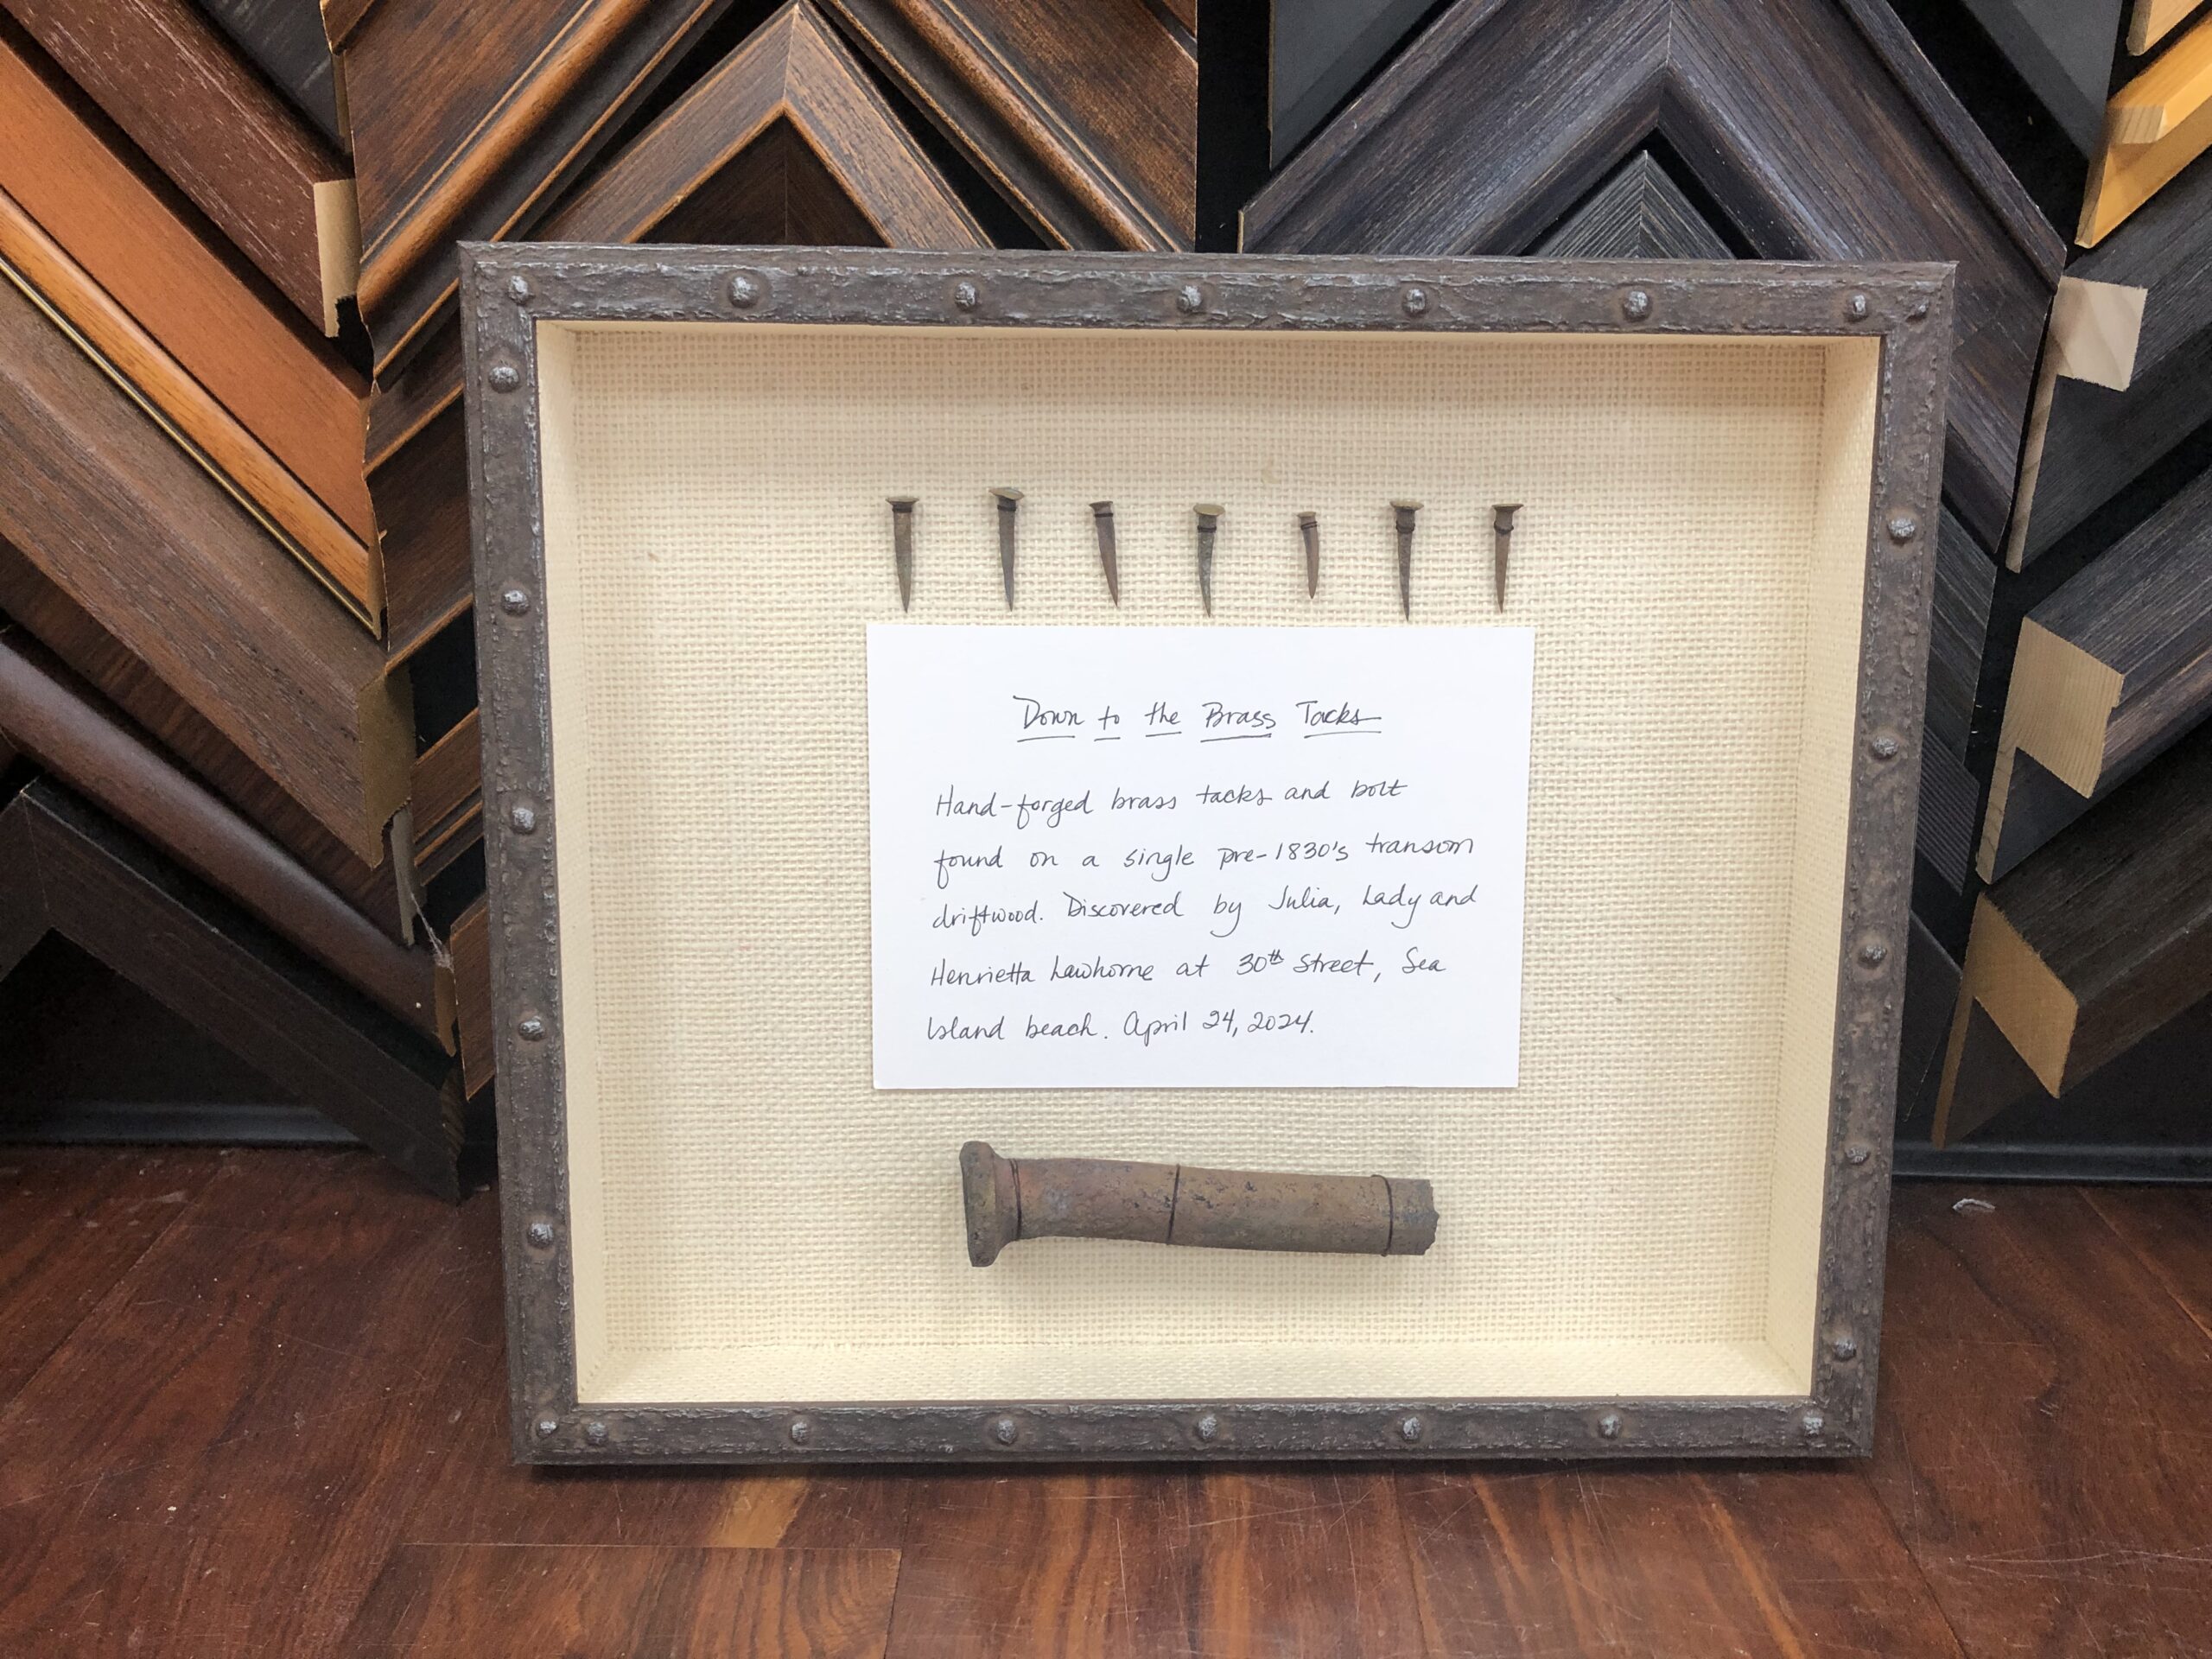 Down to the Brass Tacks
Hand-forged brass tacks and bolt
found on a single pre-1830's transom
driftwood. Discovered by Julia, Lady and
Henrietta Lawhorne at 30th Street, Sea
Island beach. April 24, 2024.